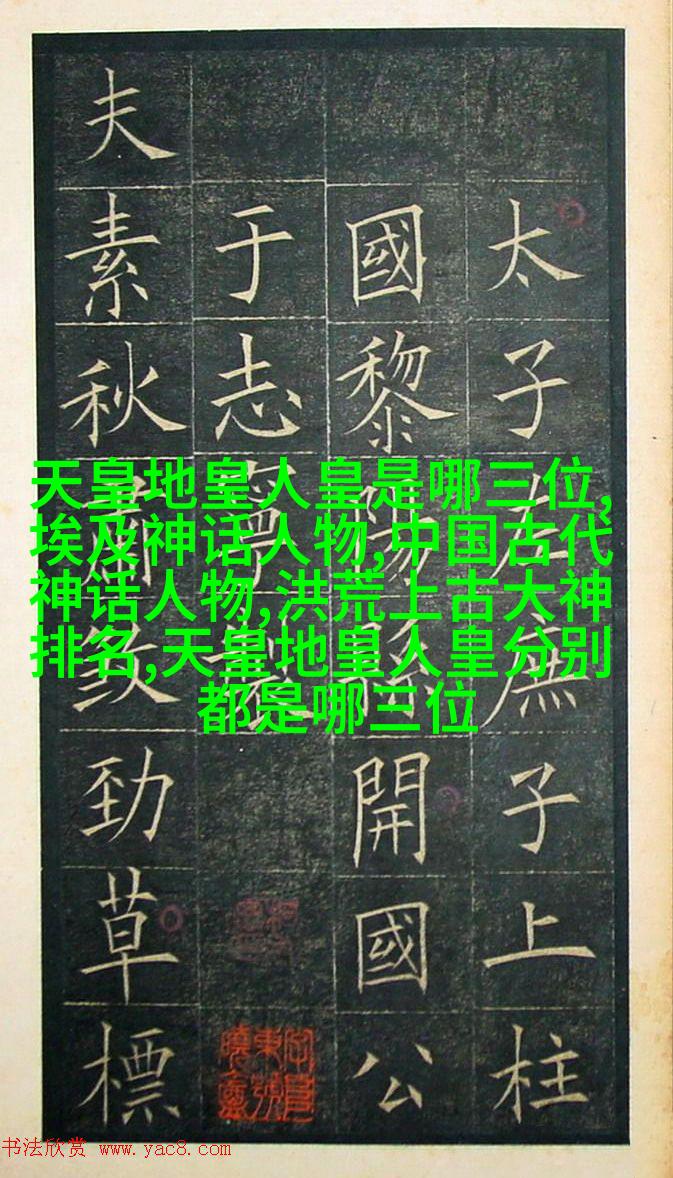 太子左庶子上柱
國黎陽縣開國公
于志寧製
夫素秋肅煞勁草標
天皇地皇人皇是哪三位,
埃及神话人物,中国古代
神话人物,洪荒上古大神
排名,天皇地皇人皇分别
都是哪三位
书法欣赏 www.yac8.com